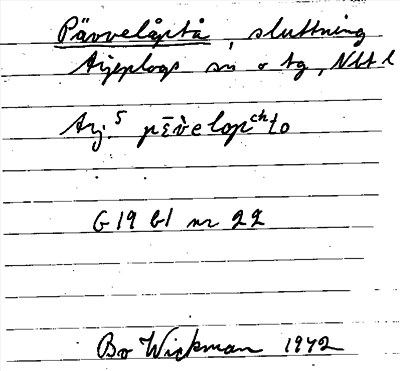 Pävvelåptå, sluttning
Arjeplogs sn o tg, Nbt l
Arj. 5 pēv̀elopchto
G 19 bl nr 22
Bo Wickman 1942